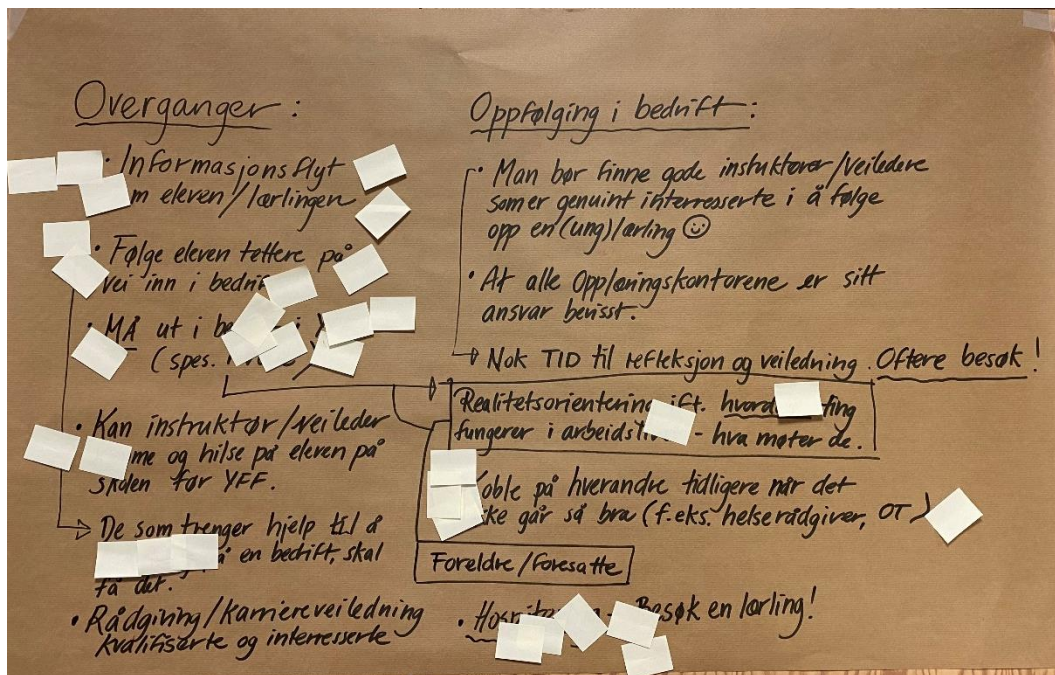 Overganger :
• Informasjonsflyt
m eleven/lærlingen
• Følge eleven tettere på
vei inn i bedrif
• MÅ ut i be
(spes.
• Kan instruktør/veileder
me og hilse på eleven på
skolen før YFF.
De som trenger hjelp til å
en bedrift, skal
få det.
• Rådgiving/karriereveiledning
kvalifiserte og interresserte
Oppfølging i bedrift :
• Man bør finne gode instruktører/veiledere
som er genuint interresserte i å følge
opp en (ung) lærling ☺
• At alle Opplæringskontorene er sitt
ansvar bevisst.
Nok TID til refleksjon og veiledning. Oftere besøk !
Realitetsorientering ift. hvord ting
fungerer i arbeidsli - hva møter de.
oble på hverandre tidligere når det
ike går så bra (f.eks. helserådgiver, OT )
Foreldre/foresatte
• Hospite Besøk en lærling!